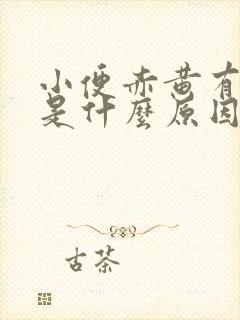 小便赤黄有
是什麼原因
古茶